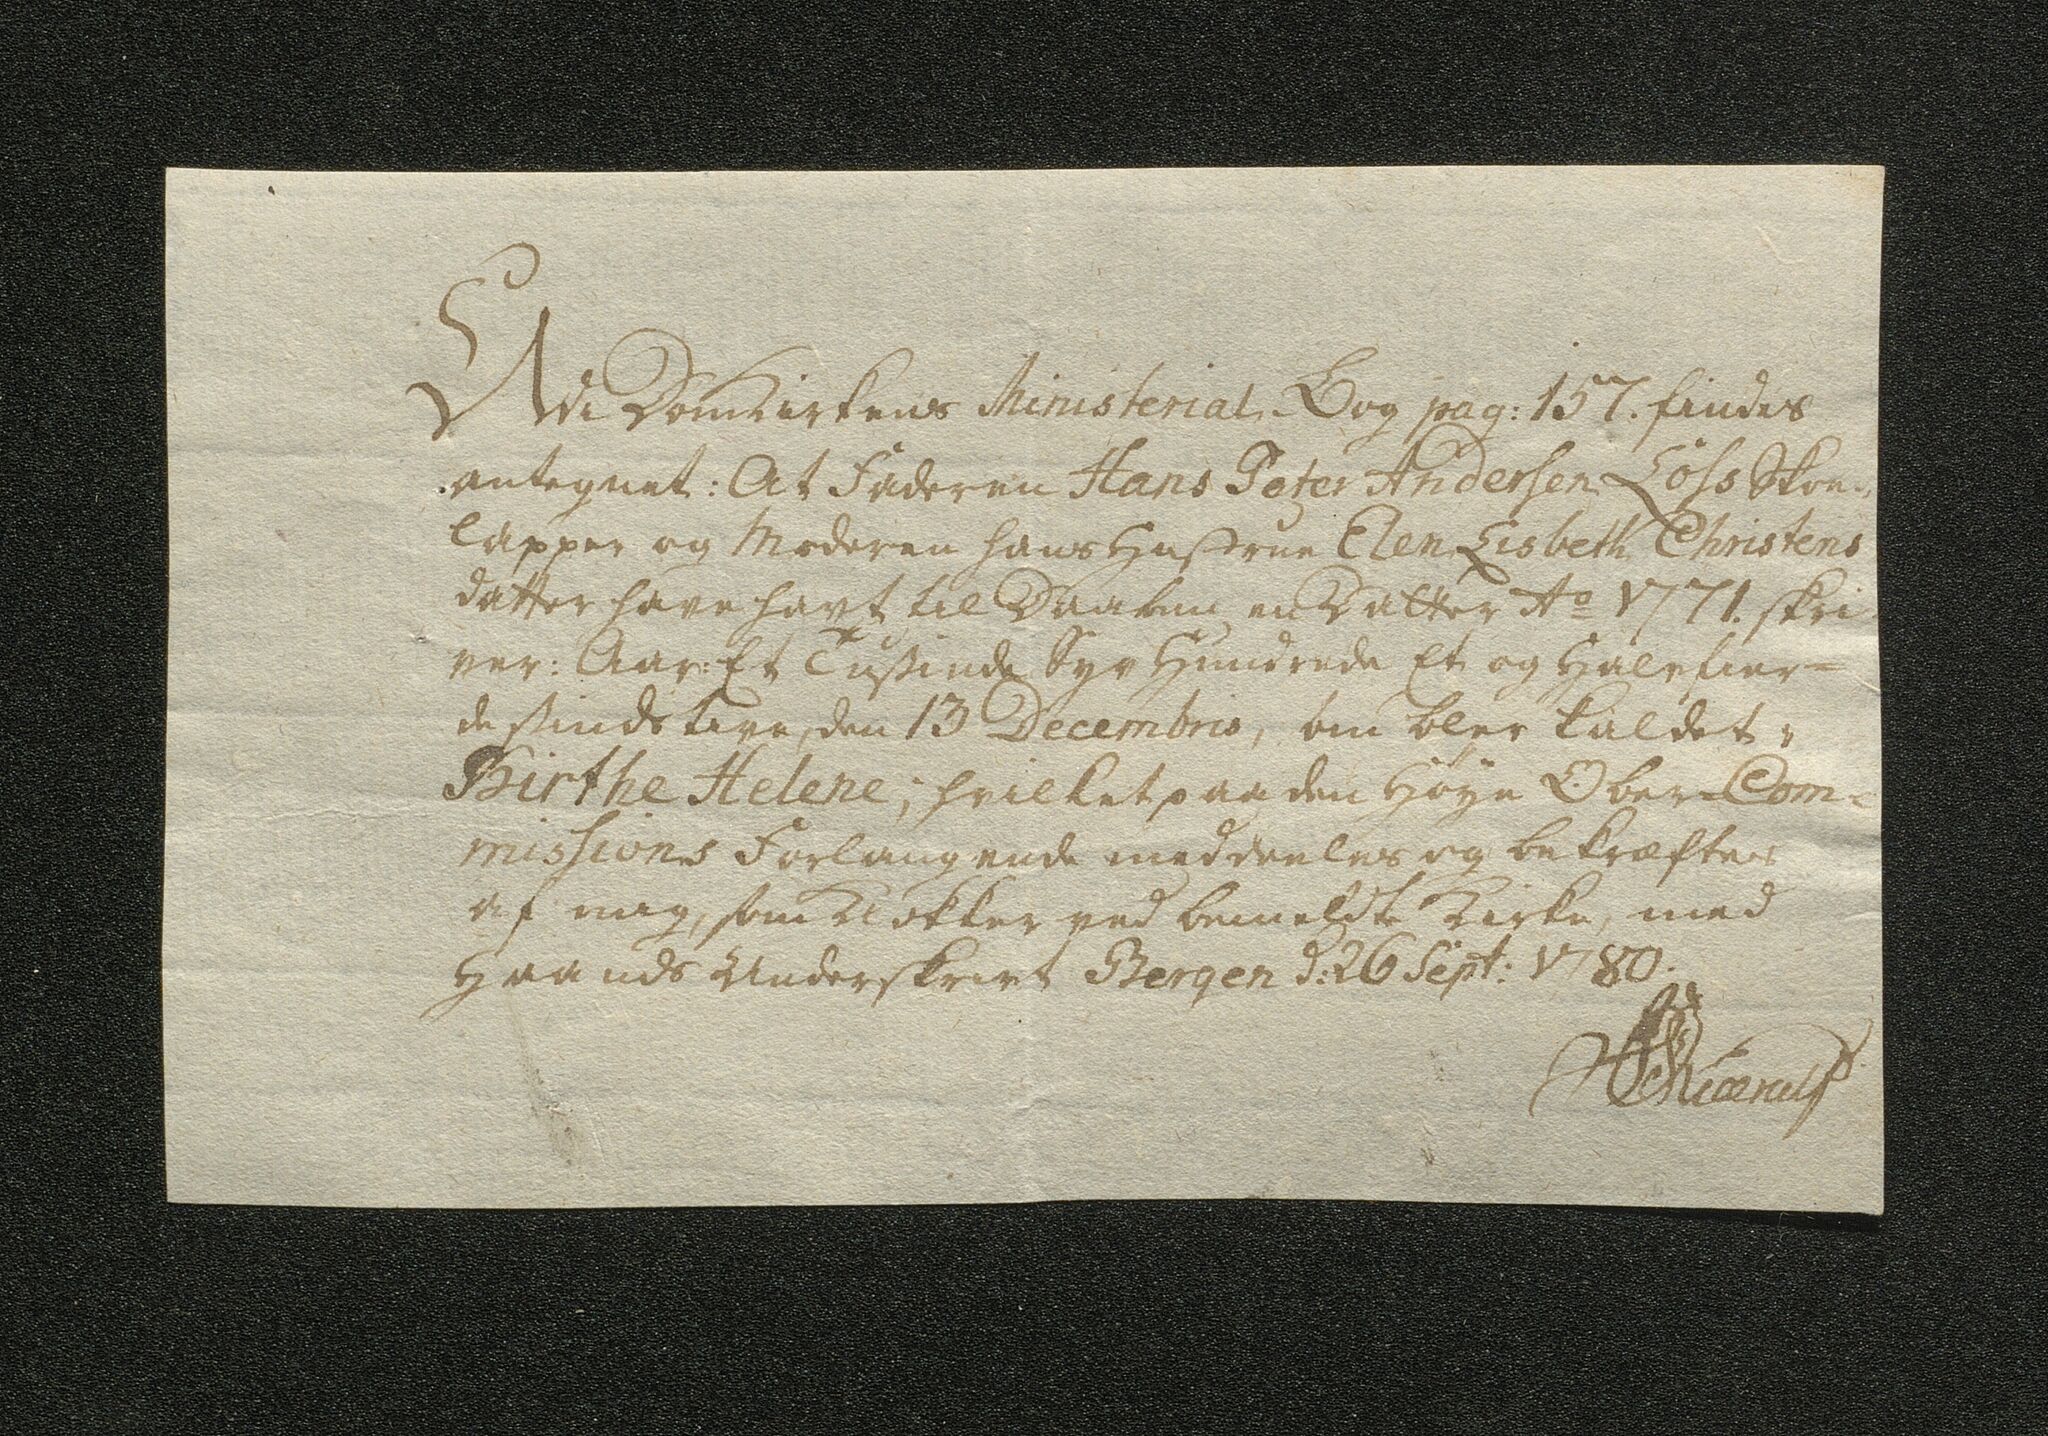 Udi Domkirkens Ministerial-Bog pag: 157. findes
antegnet: At Faderen Hans Peter Andersen Löss Skoe-
lapper og Moderen hans Hustrue Elen Lisbeth Christens
datter have havt til Daaben en Datter Ao 1771. skri
ver: Aar: Et Tusinde Syv Hundrede Et og Halvfier=
desindstive, den 13 Decembris, som blev kaldet,
Birthe Helene; hvilket paa den Høye Ober-Com=
missions Forlangende meddeeles og bekræftes
af mig, som Klokker ved bemeldte Kirke, med
Haands Underskrivt Bergen d: 26 Sept: 1780.